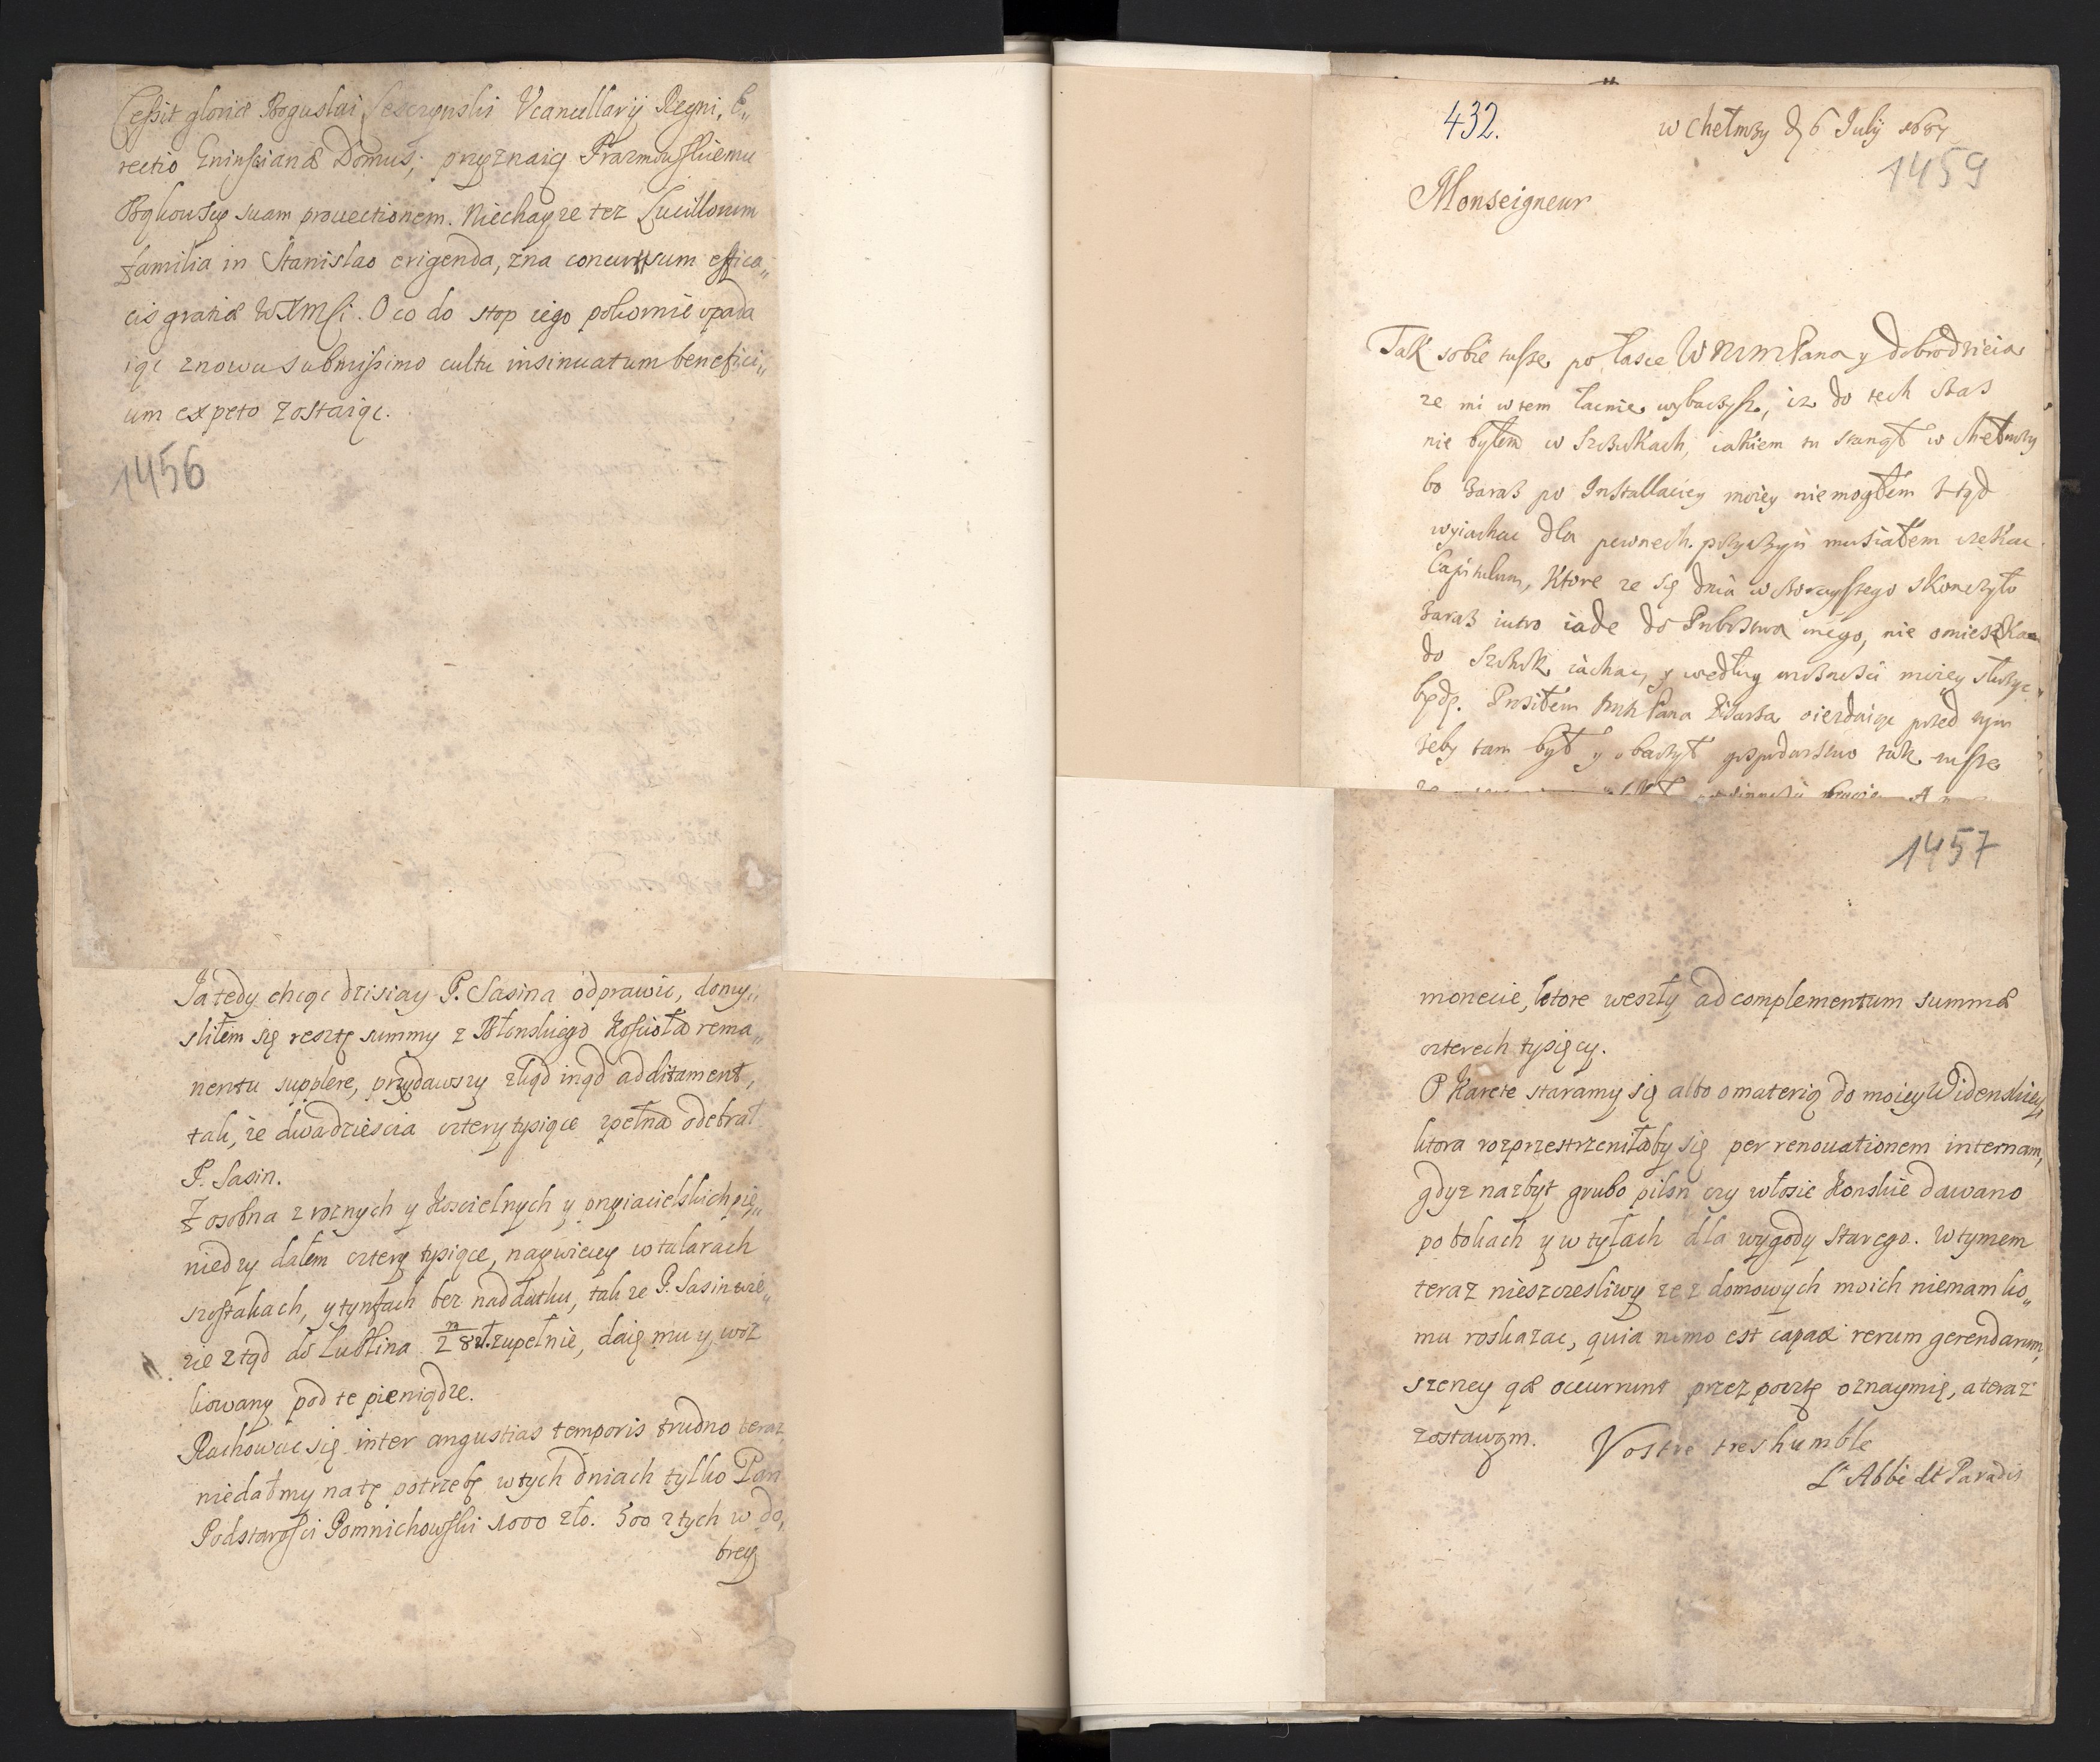 Cessit gloriæ Boguslai Leszczynski Vcancellarij Regni, E„
rectio Gninscianæ Domus; przyznaią Prazmowskiemu
Bąkowscy suam prouectionem. Niechayze tez Lucillorum
familia in Stanislao erigenda, zna concursum effica„
cis gratiæ WXMsci. O co do stop iego pokornie vpada
iąc znowu submissimo cultu insinuatum benefici„
um expeto zostaiąc.
1456
Ja tedy chcąc dzisiay P. Sasina odprawic, domy„
sliłem się resztę summy z Błonskiego Kościoła rema„
nentu supplere, przydawszy zkąd inąd additament,
tak, że dwadzieścia cztery tysiące zpełna odebrał
P. Sasin.
Z osobna z roznych y Koscielnych y przyiacielskich pie„
niedzy dałem cztery tysiące, naywiecey w talarach
szostakach, y tynfach bez naddatku, tak ze P. Sasin wie„
zie ztąd do Lublina 28 zł. zupełnie, daię mu y woz
kowany pod te pieniądze.
Rachowac się inter angustias temporis trudno teraz
niedałmy na tę potrzebę w tych dniach tylko Pan
Podstarosci Pomnichowski 1000 zło. 500 z tych w do„
brey
432.
w Chełmży d 6 July 1687
1459
Monseigneur
Tak sobie tusze po łasce WMMPana y dobrodzieia
ze mi w tem łacnie wybaczysz, iz do tech czas
nie byłem w Szczukach, iakiem tu stanął w Chełmzy
bo zaraz po Installaciey moiey niemogłem ztąd
wyiachac dla pewnech przyczyn musiałem czekac
Capitulum, Ktore ze się dnia wczorayszego skonczyło
zaraz iutro iade do Probstwa mego, nie omieszkam
do Szczuk iachac, y według mozności moiey słuzyc
będę. Prosiłem Pana Pisarza oiezdzaiąc przed tym
zeby tam był y obaczył gospodarstwo tak tusze
1457
monecie, ktore weszły ad complementum summæ
czterech tysięcy.
O Karete staramy się albo o materią do moiey Widenskiey,
ktora rozprzestrzeniłaby się per renouationem internam,
gdyz nazbyt grubo pilsn czy włosie Konskie dawano
po bokach y w tyłach dla wygody starego. W tymem
teraz nieszczesliwy ze z domowych moich niemam ko„
mu roskazac, quia nemo est capax rerum gerendarum,
szerzey qæ occurrunt przez pocztę oznaymię, a teraz
zostawam. Vostre treshumble
L'Abbé de Paradis